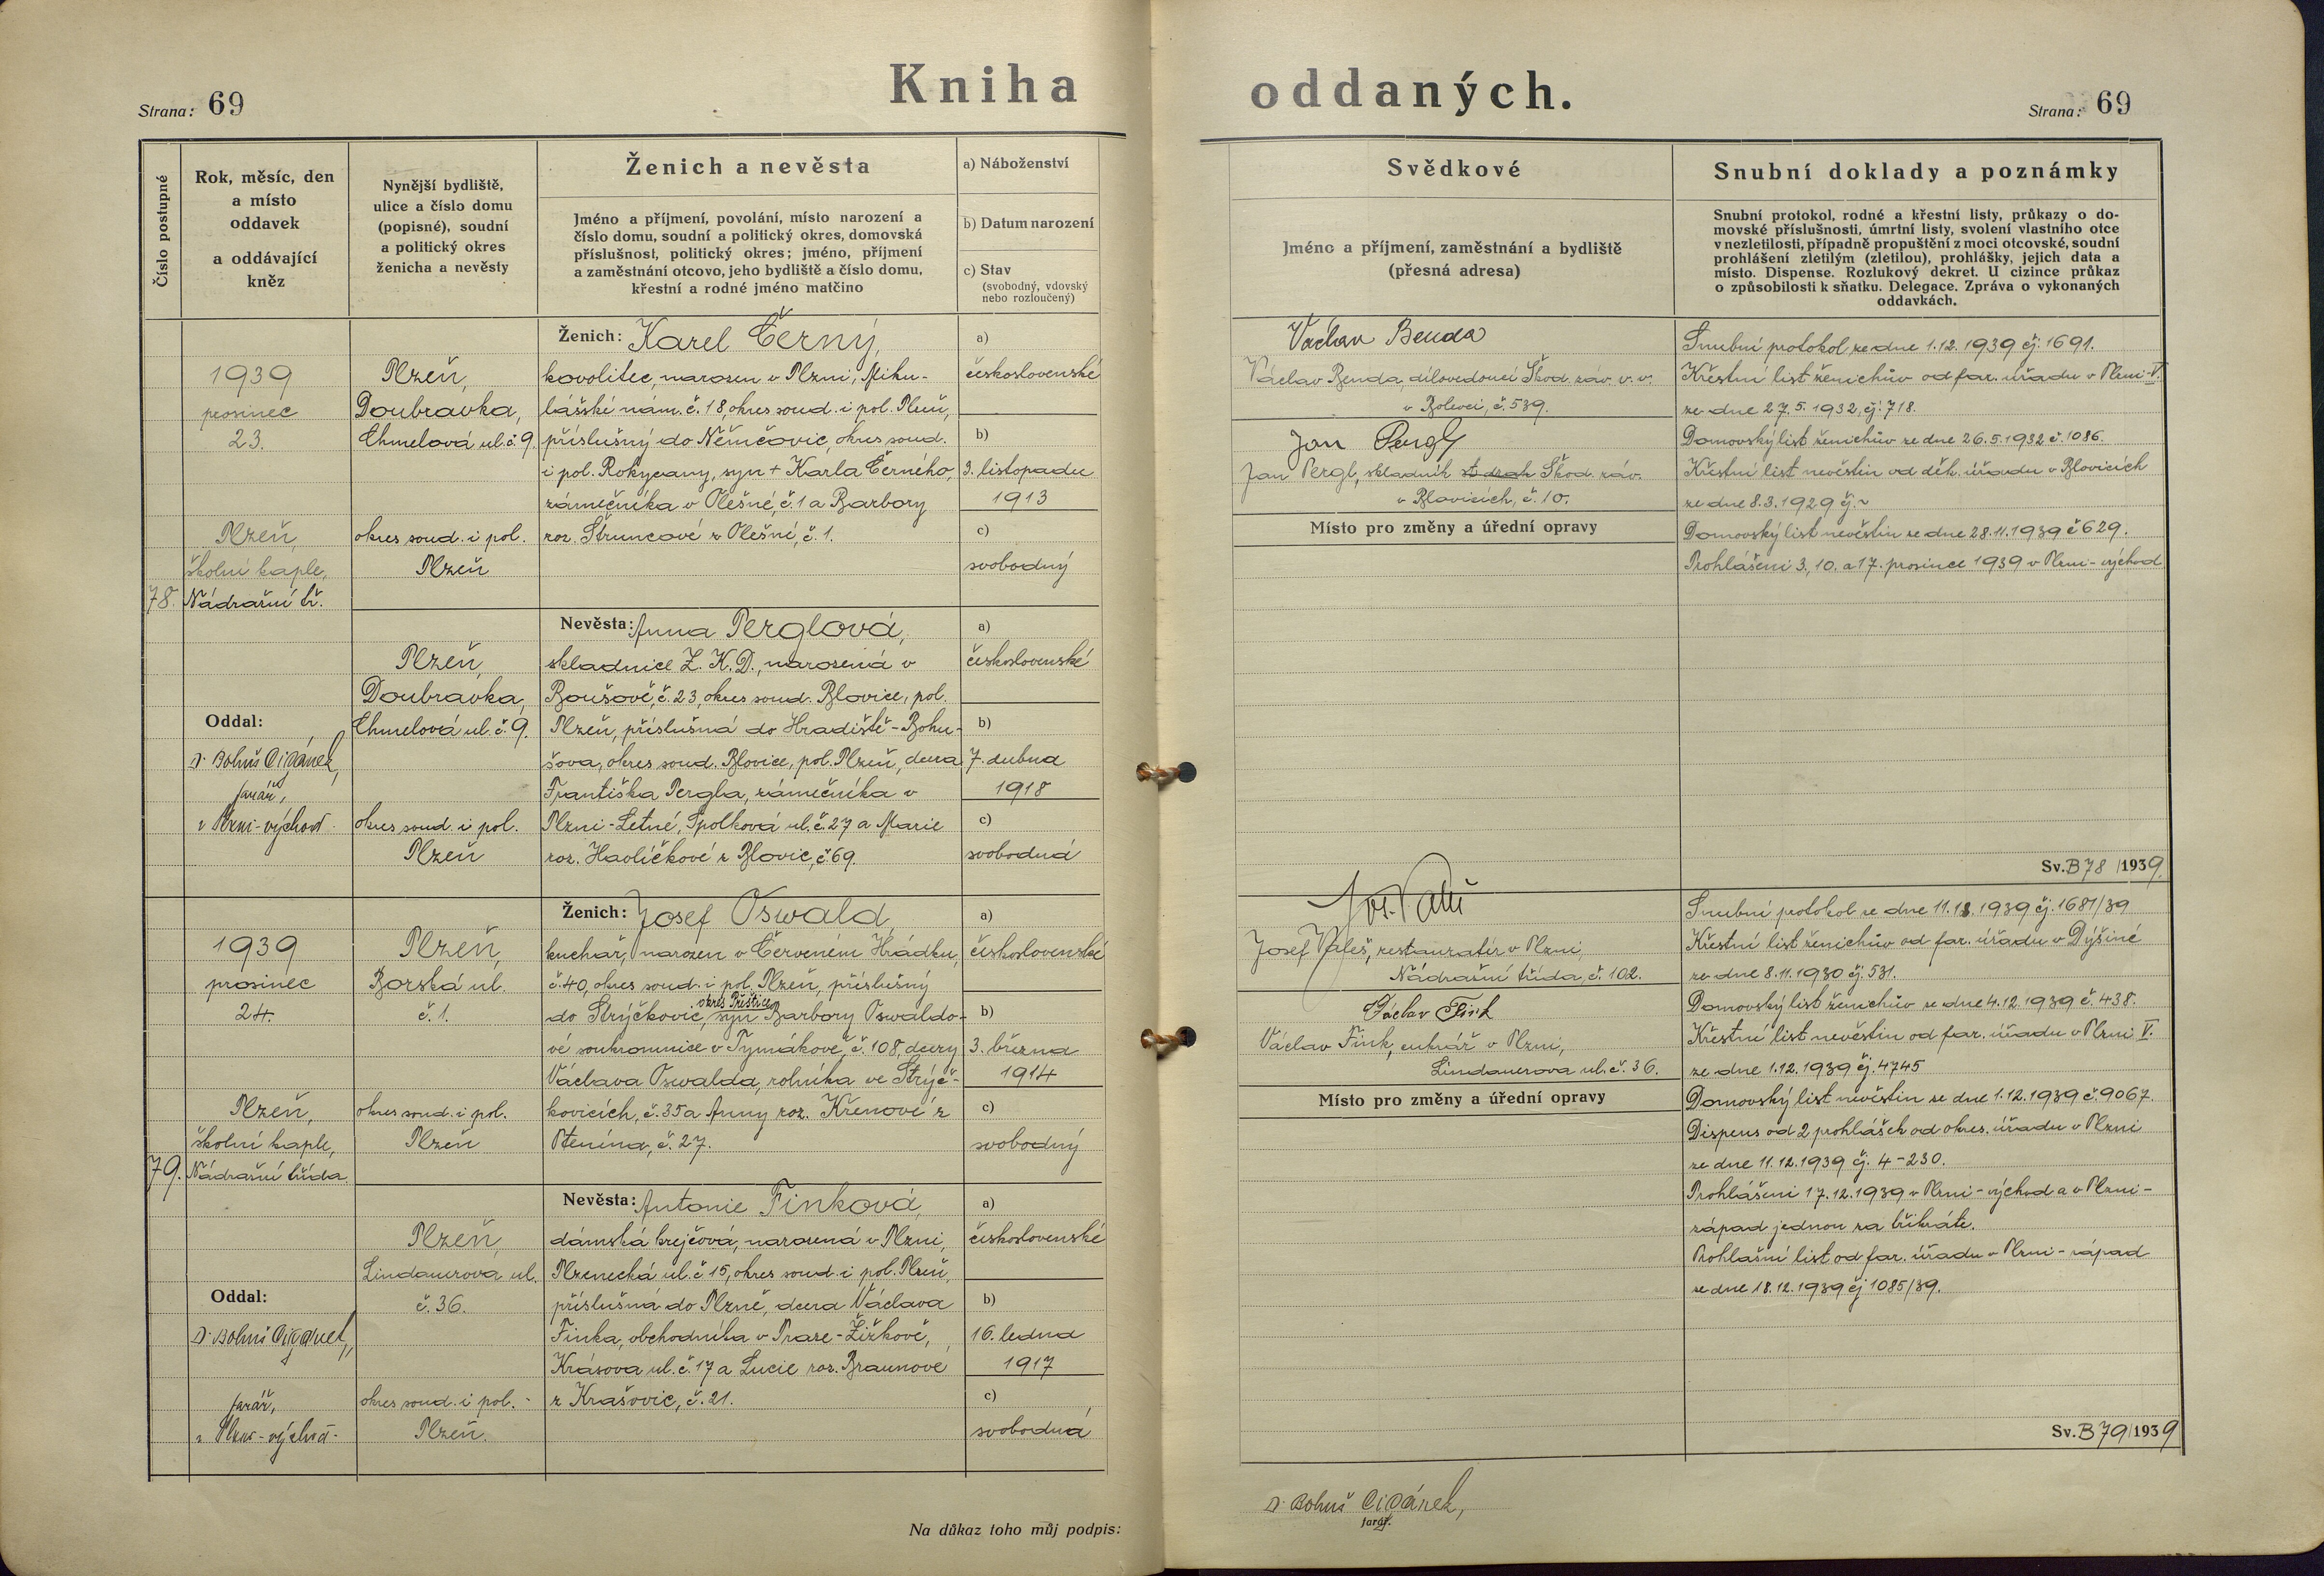 Kniha oddaných.
Strana: 69
Strana: 69
Číslo postupné
Rok, měsíc, den
a místo
oddavek
a oddávající
kněz
Nynější bydliště,
ulice a číslo domu
(popisné), soudní
a politický okres
ženicha a nevěsty
Ženich a nevěsta
Jméno a příjmení, povolání, místo narození a
číslo domu, soudní a politický okres, domovská
příslušnost, politický okres; jméno, příjmení
a zaměstnání otcovo, jeho bydliště a číslo domu,
křestní a rodné jméno matčino
a) Náboženství
b) Datum narození
c) Stav
(svobodný, vdovský
nebo rozloučený)
Svědkové
Jméno a příjmení, zaměstnání a bydliště
(přesná adresa)
Snubní doklady a poznámky
Snubní protokol, rodné a křestní listy, průkazy o do-
movské příslušnosti, úmrtní listy, svolení vlastního otce
v nezletilosti, případně propuštění z moci otcovské, soudní
prohlášení zletilým (zletilou), prohlášky, jejich data a
místo. Dispense. Rozlukový dekret. U cizince průkaz
o způsobilosti k sňatku. Delegace. Zpráva o vykonaných
oddavkách.
78.
1939
prosinec
23.
Plzeň,
školní kaple,
Nádražní tř.
Oddal:
Dr Bohuš Cigánek,
farář,
v Plzni-východ
Plzeň,
Doubravka,
Chmelová ul. č. 9.
okres soud. i pol.
Plzeň
Plzeň,
Doubravka,
Chmelová ul. č. 9.
okres soud. i pol.
Plzeň
Ženich: Karel Černý,
kovolitec, narozen v Plzni, Miku-
lášské nám. č. 18, okres soud. i pol. Plzeň,
příslušný do Němčovic, okres soud.
i pol. Rokycany, syn + Karla Černého,
zámečníka v Olešné, č. 1 a Barbory
roz. Štruncové z Olešné, č. 1.
Nevěsta: Anna Perglová,
skladnice Z. K. D., narozená v
Boušově, č. 23, okres soud. Blovice, pol.
Plzeň, příslušná do Hradiště-Bohu-
šova, okres soud. Blovice, pol. Plzeň, dcera
Františka Pergla, zámečníka v
Plzni-Letné, Spolková ul. č. 27 a Marie
roz. Havlíčkové z Blovic, č. 69.
a)
československé
b)
3. listopadu
1913
c)
svobodný
a)
československé
b)
7. dubna
1918
c)
svobodná
Václav Benda
Václav Benda, dílovedoucí Škod. záv. v. v.
v Bolevci, č. 539.
Jan Pergl
Jan Pergl, skladník Škod. záv.
v Blovicích, č. 10.
Místo pro změny a úřední opravy
Snubní protokol ze dne 1.12.1939 čj. 1691.
Křestní list ženichův od far. úřadu v Plzni-V.
ze dne 27.5.1932, čj. 718.
Domovský list ženichův ze dne 26.5.1932 č. 1086.
Křestní list nevěstin od děk. úřadu v Blovicích
ze dne 8.3.1929 čj. ~
Domovský list nevěstin ze dne 28.11.1939 č 629.
Prohlášeni 3., 10. a 17. prosince 1939 v Plzni-východ
Sv. B 78 /1939.
79.
1939
prosinec
24.
Plzeň,
školní kaple,
Nádražní třída
Oddal:
Dr Bohuš Cigánek,
farář,
v Plzni-východ-
Plzeň,
Borská ul.
č. 1.
okres soud. i pol.
Plzeň
Plzeň,
Lindauerova ul.
č. 36.
okres soud. i pol.
Plzeň.
Ženich: Josef Oswald,
kuchař, narozen v Červeném Hrádku,
č. 40, okres soud. i pol. Plzeň, příslušný
okres Přeštice
do Strýčkovic, syn Barbory Oswaldo-
vé soukromnice v Tymákově, č. 108, dcery
Václava Oswalda, rolníka ve Strýč-
kovicích, č. 35 a Anny roz. Křenové z
Ptenína, č. 27.
Nevěsta: Antonie Finková,
dámská krejčová, narozená v Plzni,
Plzenecká ul. č 15, okres soud. i pol. Plzeň,
příslušná do Plzně, dcera Václava
Finka, obchodníka v Praze-Žižkově,
Krásova ul. č. 17 a Lucie roz. Braunové
z Krašovic, č. 21.
a)
československé
b)
3. března
1914
c)
svobodný
a)
československé
b)
16. ledna
1917
c)
svobodná
Josef Valeš, restauratér v Plzni,
Nádražní třída, č. 102.
Václav Fink
Václav Fink, cukrář v Plzni,
Lindauerova ul. č. 36.
Místo pro změny a úřední opravy
Snubní protokol ze dne 1939 čj. 1681/39
Křestní list ženichův od far. úřadu v Dýšině
ze dne 8.11.1930 čj. 531.
Domovský list ženichův ze dne 4.12.1939 č. 438.
Křestní list nevěstin od far. úřadu v Plzni V.
ze dne 1.12.1939 čj. 4745
Domovský list nevěstin ze dne 1.12.1939 č. 9067
Dispens od 2 prohlášek od okres. úřadu v Plzni
ze dne 11.12.1939 čj. 4-230.
Prohlášeni 17.12.1939 v Plzni-východ a v Plzni-
západ jednou za třikráte.
Prohlašní list od far. úřadu v Plzni-západ
ze dne 18.12.1939 čj 1085/39.
Sv. B 79/1939
Na důkaz toho můj podpis:
Dr Bohuš Cigánek,
farář.